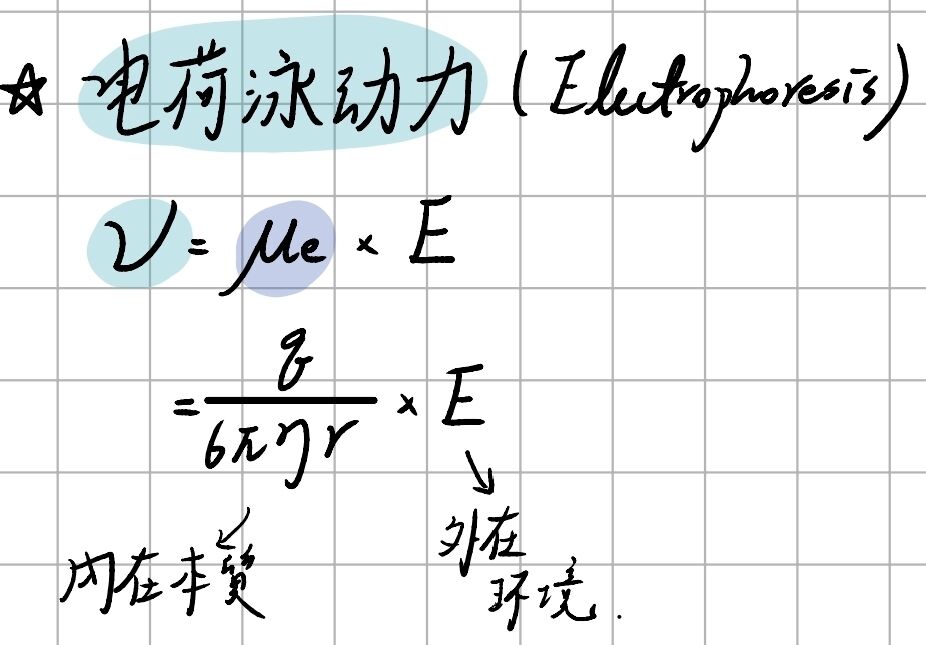 ☆ 电荷泳动力 (Electrophoresis)
ν = μe × E
= q / 6πηr × E
内在本質
外在
环境.